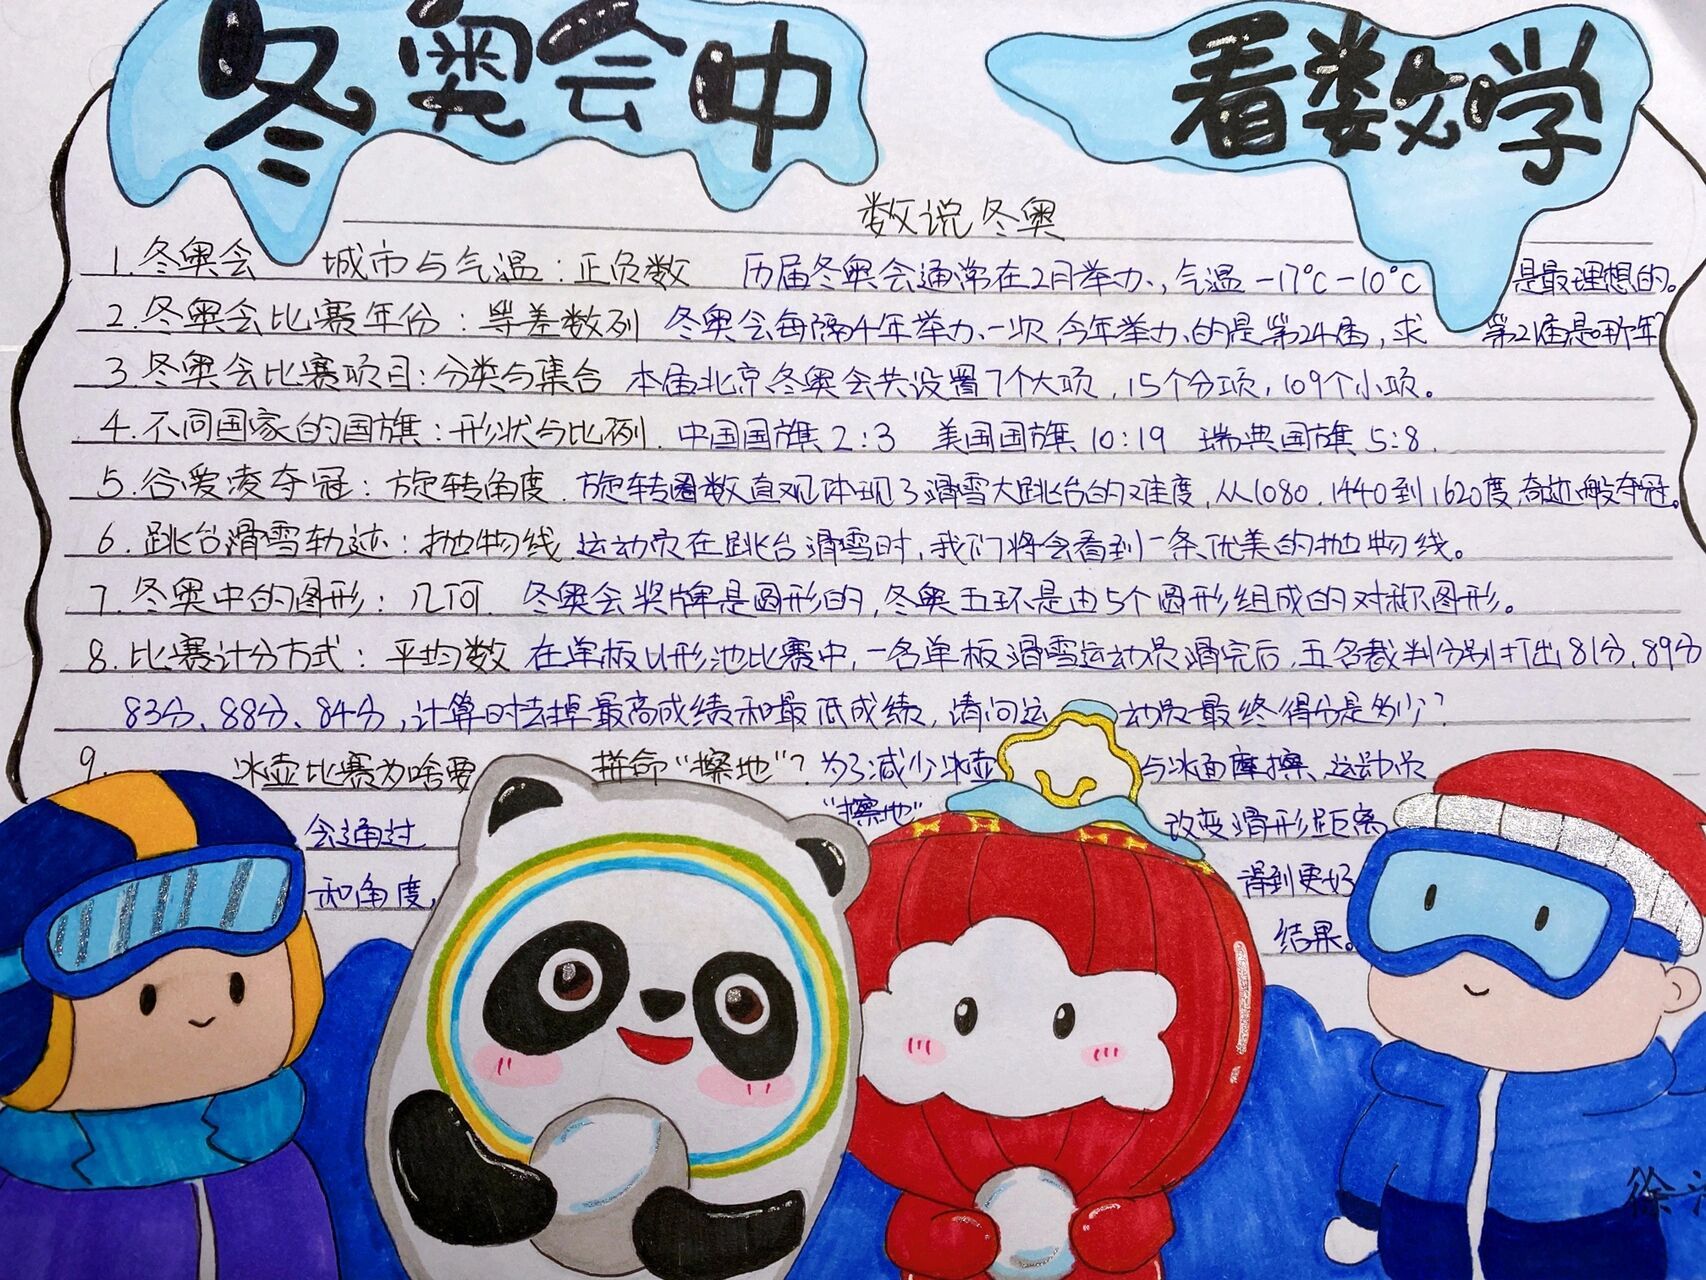 冬奥会中 看数学
数说冬奥
1.冬奥会 城市与气温：正负数 历届冬奥会通常在2月举办，气温-17℃-10℃是最理想的。
2.冬奥会比赛年份：等差数列 冬奥会每隔4年举办一次，今年举办的是第24届，求 第21届是哪年？
3.冬奥会比赛项目：分类与集合 本届北京冬奥会共设置7个大项，15个分项，109个小项。
4.不同国家的国旗：形状与比例. 中国国旗2:3 美国国旗10:19 瑞典国旗5:8.
5.谷爱凌夺冠：旋转角度. 旋转圈数直观体现了滑雪大跳台的难度，从1080.1440到1620度，奇迹般夺冠。
6.跳台滑雪轨迹：抛物线 运动员在跳台滑雪时，我们将会看到一条优美的抛物线。
7.冬奥中的图形：几何. 冬奥会奖牌是圆形的，冬奥五环是由5个圆形组成的对称图形。
8.比赛计分方式：平均数 在单板U形池比赛中，一名单板滑雪运动员滑完后，五名裁判分别打出81分、89分
83分、88分、84分，计算时去掉最高成绩和最低成绩，请问运动员最终得分是多少？
9. 冰壶比赛为啥要 拼命“擦地”？为了减少冰壶 与冰面摩擦、运动员
会通过 “擦地” 改变滑形距离
和角度， 得到更好
结果。
徐